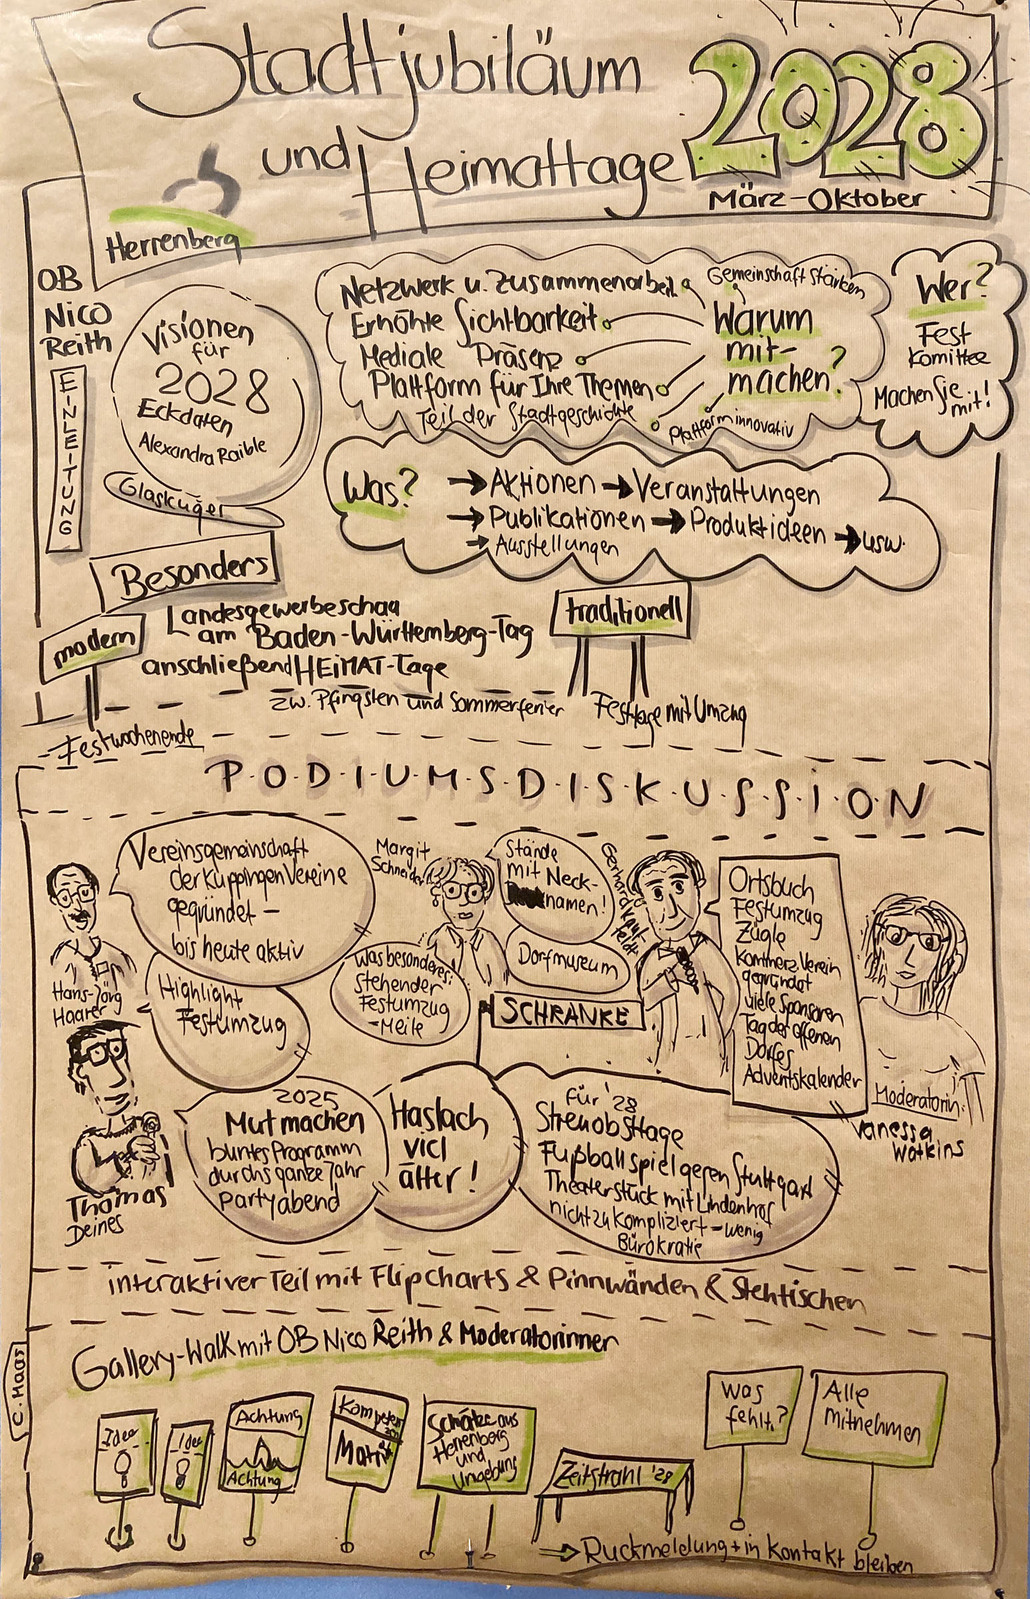 Stadtjubiläum
und Heimattage
2028
März-Oktober
Herrenberg
OB
Nico
Reith
EINLEITUNG
Visionen
für
2028
Eckdaten
Alexandra Raible
Glaskugel
Netzwerk u. Zusammenarbeit
Erhöhte Sichtbarkeit
Mediale Präsenz
Plattform für Ihre Themen
Teil der Stadtgeschichte
Gemeinschaft stärken
Warum
mit-
machen?
Plattform innovativ
Wer?
Fest
Komittee
Machen Sie
mit!
Was?
→ Aktionen → Veranstaltungen
→ Publikationen → Produktideen → usw.
→ Ausstellungen
Besonders
modern
Landesgewerbeschau
am Baden-Württemberg-Tag
anschließend HEiMAT-Tage
zw. Pfingsten und Sommerferien
traditionell
Festtage mit Umzug
Festwochenende
P·O·D·I·U·M·S·D·I·S·K·U·S·S·I·O·N
Vereinsgemeinschaft
der Kuppingen Vereine
gegründet –
bis heute aktiv
Hans-Jörg
Haarer
Highlight
Festumzug
Margit
Schneider
Stände
mit Neck-
namen!
Dorfmuseum
Was besonderes:
Stehender
Festumzug
-Meile
SCHRANKE
Gerhard
Ortsbuch
Festumzug
Zügle
Komtherz Verein
gegründet
viele Sponsoren
Tag der offenen
Dorfes
Adventskalender
Moderatorin:
Vanessa
Watkins
Thomas
Deines
2025
Mut machen
buntes Programm
durchs ganze Jahr
Partyabend
Haslach
viel
älter!
für '28
Streuobsttage
Fußballspiel gegen Stuttgart
Theaterstück mit Lindenhof
nicht zu kompliziert – wenig
Bürokratie
interaktiver Teil mit Flipcharts & Pinnwänden & Stehtischen
Gallery-Walk mit OB Nico Reith & Moderatorinnen
C. Haas
Idee
Idee
Achtung
Achtung
Schätze aus
Herrenberg
und
Umgebung
Zeitstrahl '28
Was
fehlt?
Alle
Mitnehmen
⇒ Rückmeldung + in Kontakt bleiben